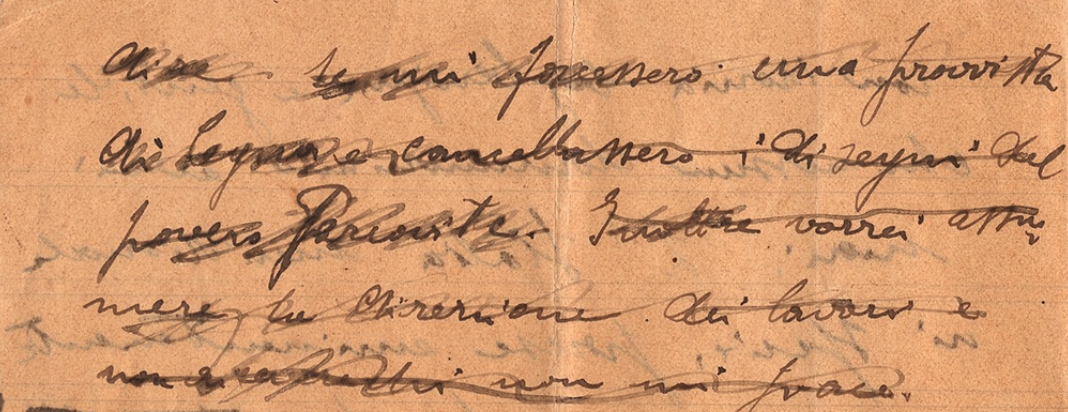 dire se mi facessero una provvista
di Legna e cancellassero i disegni del
povero Inoltre vorrei assu
mere la direzione dei lavori e
non mi piace.